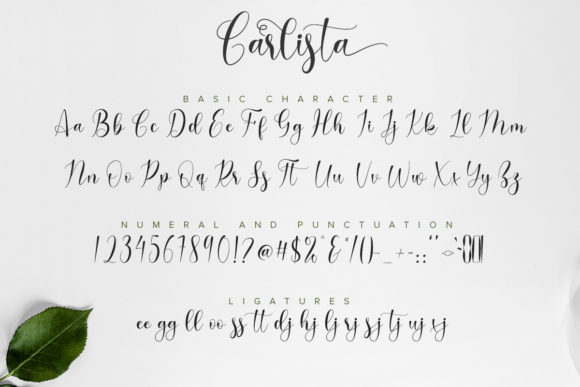 Carlista
BASIC CHARACTER
Aa Bb Cc Dd Ee Ff Gg Hh Ii Jj Kk Ll Mm
Nn Oo Pp Qq Rr Ss Tt Uu Vv Ww Xx Yy Zz
NUMERAL AND PUNCTUATION
1234567890!?@#$%^&*/()-_+-:;'"<>
LIGATURES
ee gg ll oo ss tt dj hj lj rj sj tj uj xj